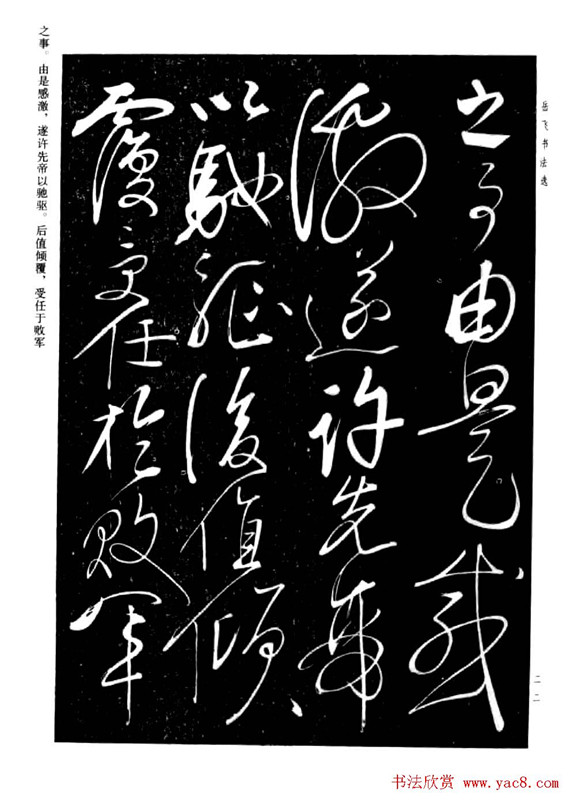 岳飞书法选
之事由是感
激遂许先帝
以驰驱後值倾
覆受任於败军
二二
之事。由是感激，遂许先帝以驰驱。后值倾覆，受任于败军
书法欣赏 www.yac8.com